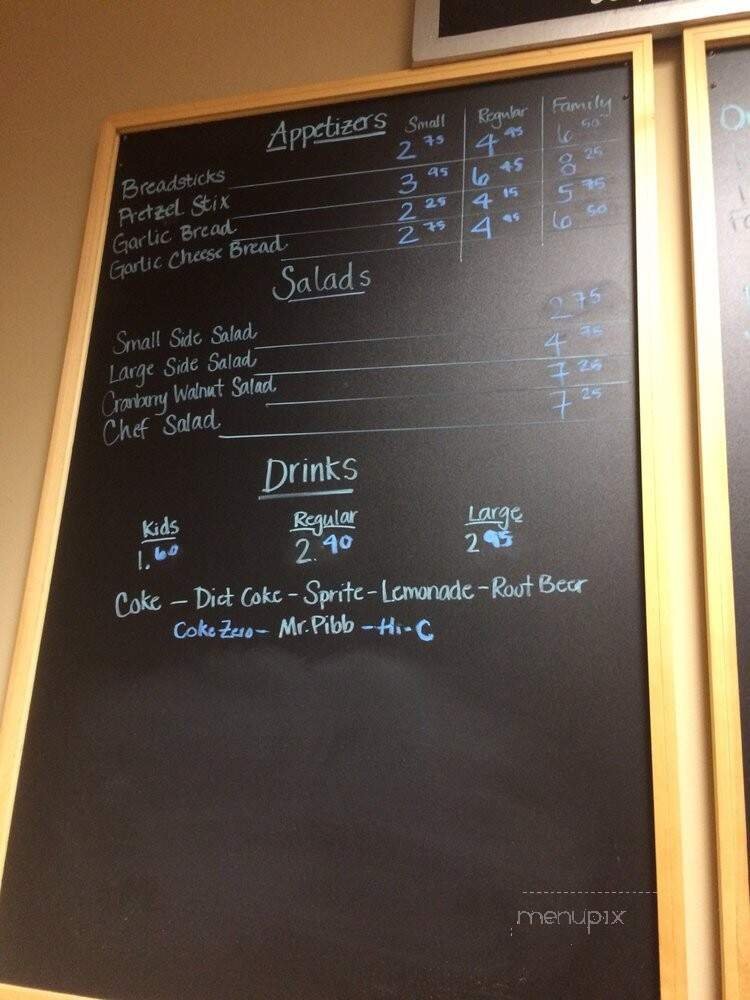 Appetizers Small Regular Family
Breadsticks 2 75 4 95 6 50
Pretzel Stix 3 95 6 45 8 25
Garlic Bread 2 25 4 15 5 75
Garlic Cheese Bread 2 75 4 95 6 50
Salads
Small Side Salad 2 75
Large Side Salad 4 75
Cranberry Walnut Salad 7 25
Chef Salad 7 25
Drinks
Kids Regular Large
1.60 2.40 2 95
Coke - Diet Coke - Sprite - Lemonade - Root Beer
Coke Zero - Mr. Pibb - Hi-C
menupix